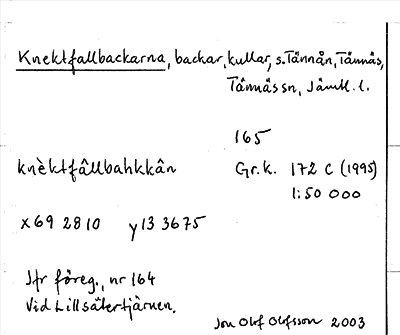 Knektfallbackarna, backar, kullar, s. Tännån, Tännäs,
Tännäs sn, Jämtl. l.
165
knèktfâllbahkkân Gr.k. 172 C (1995)
1:50 000
x69 2810 y13 3675
Jfr föreg., nr 164
Vid Lillsätertjärnen.
Jon Olof Olofsson 2003